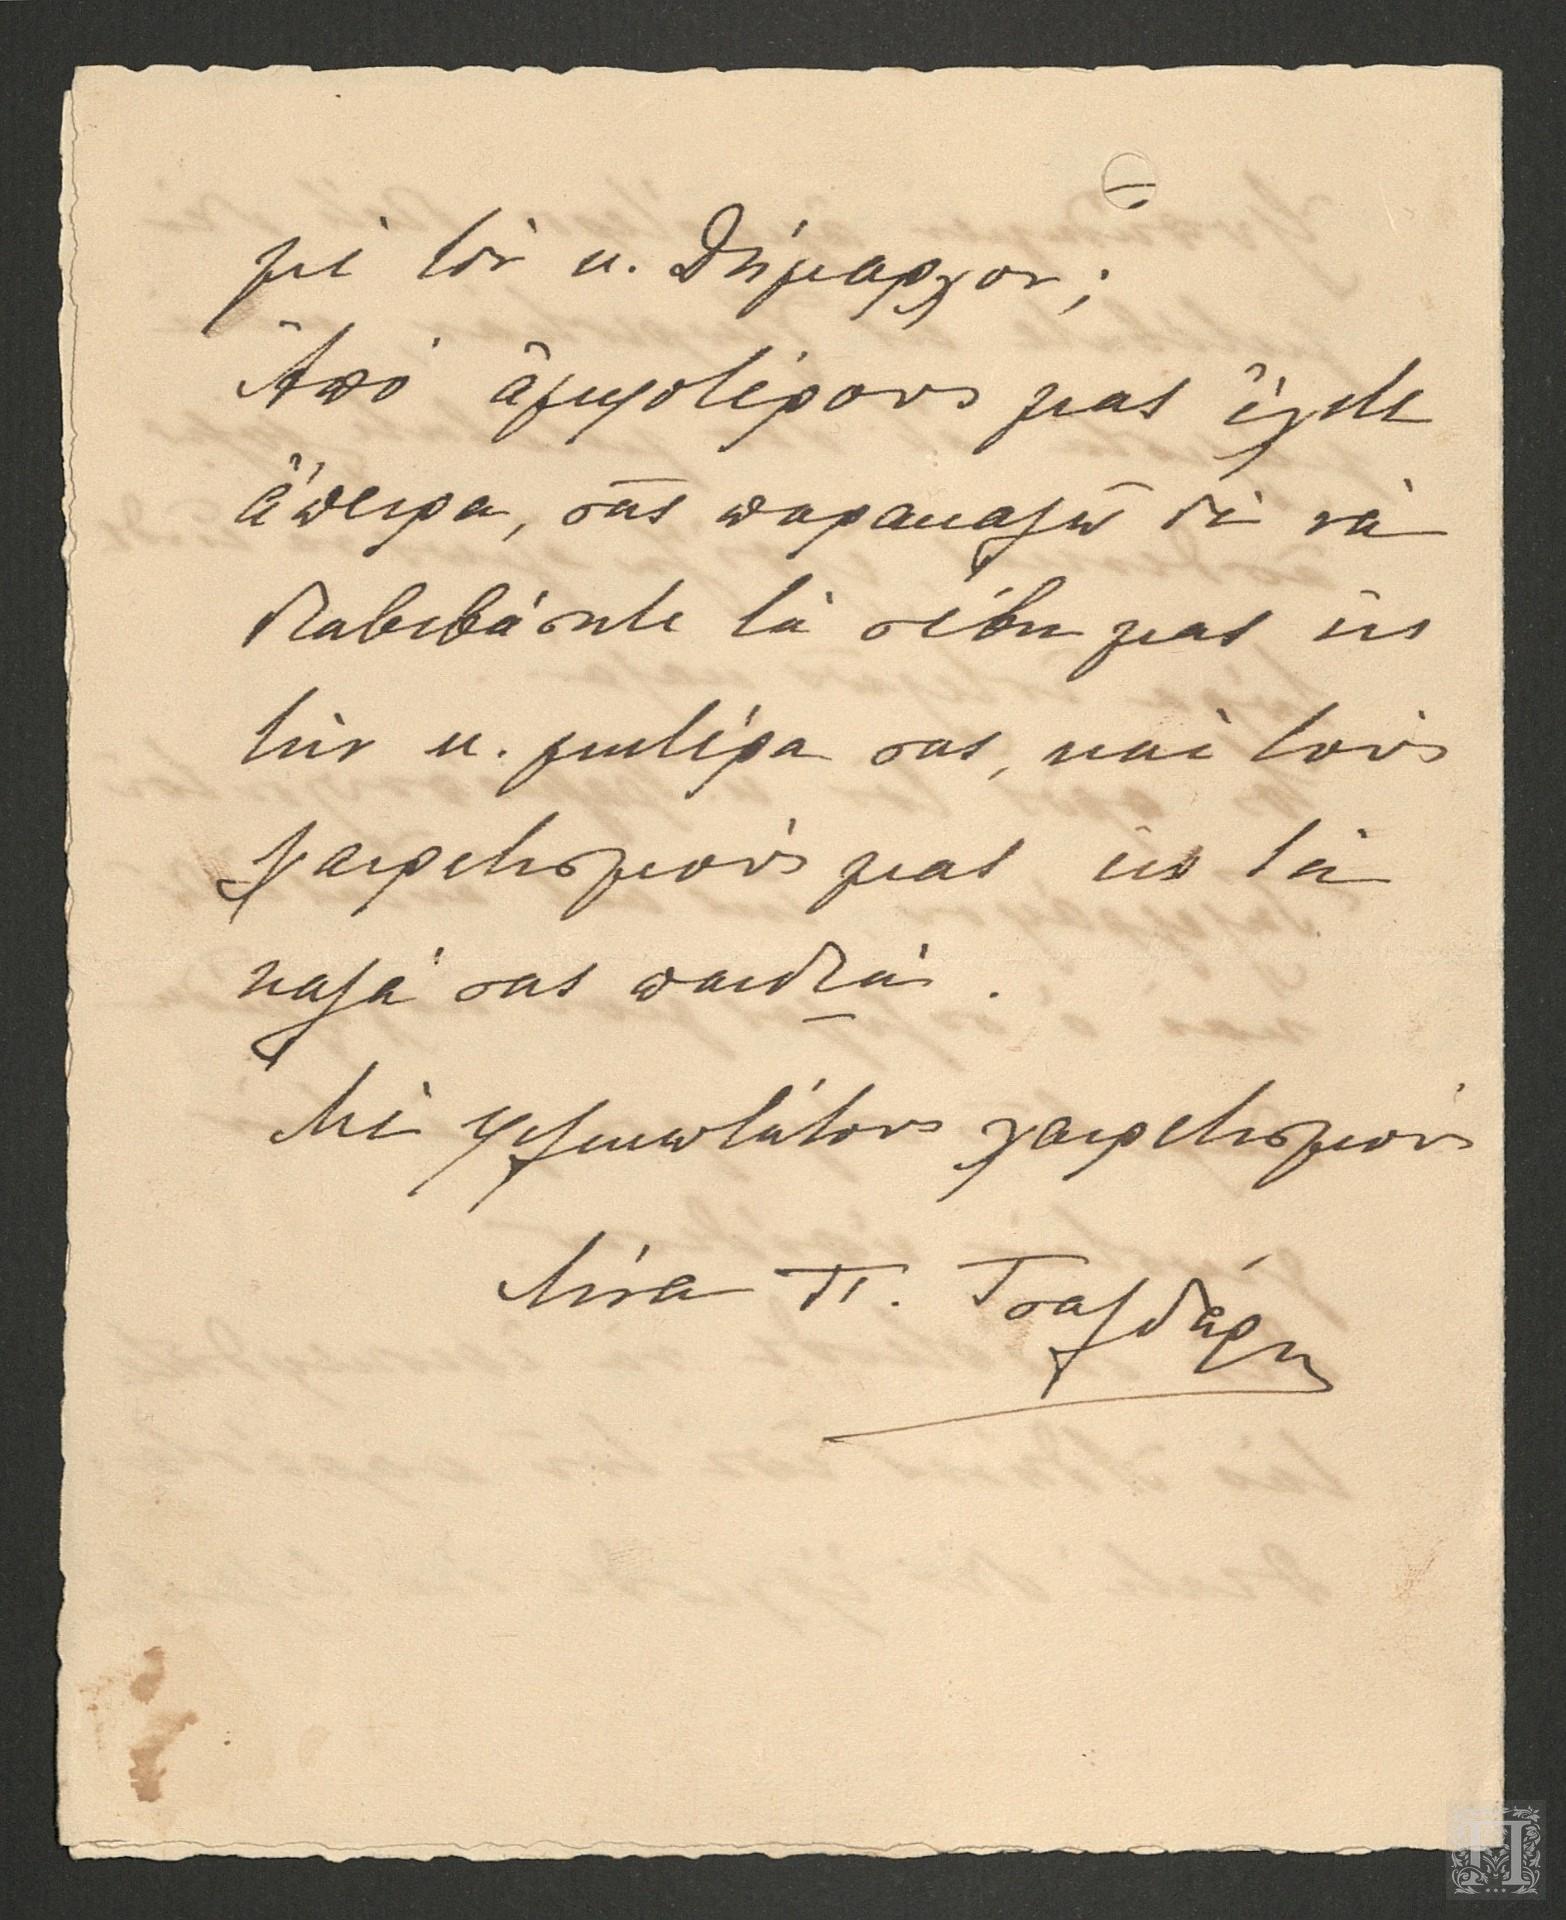 μὲ τὸν κ. Δήμαρχον;
Ἀπὸ ἀμφοτέρους μας ἔχετε
ἄπειρα, σᾶς παρακαλῶ δὲ νὰ
διαβιβάσητε τὰ σέβη μας εἰς
τὴν κ. μητέρα σας, καὶ τοὺς
χαιρετισμούς μας εἰς τὰ
καλά σας παιδιά.
Μὲ φιλικωτάτους χαιρετισμοὺς
Λίνα Π. Τσαλδάρη